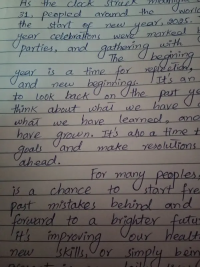 As the clock struck
31, peopled around the world
the start of new year, 2025.
year celebrations were marked
parties, and gathering with
The begining
year is a time for reflection,
and new beginnings. It's an
to look back on the past ye
think about what we have
what we have learned, and
have grown. It's also a time t
goals and make resolutions
ahead.
For many peoples,
is a chance to start fre
past mistakes behind and
forward to a brighter futu
It's improving our healt
new skills, or simply bein